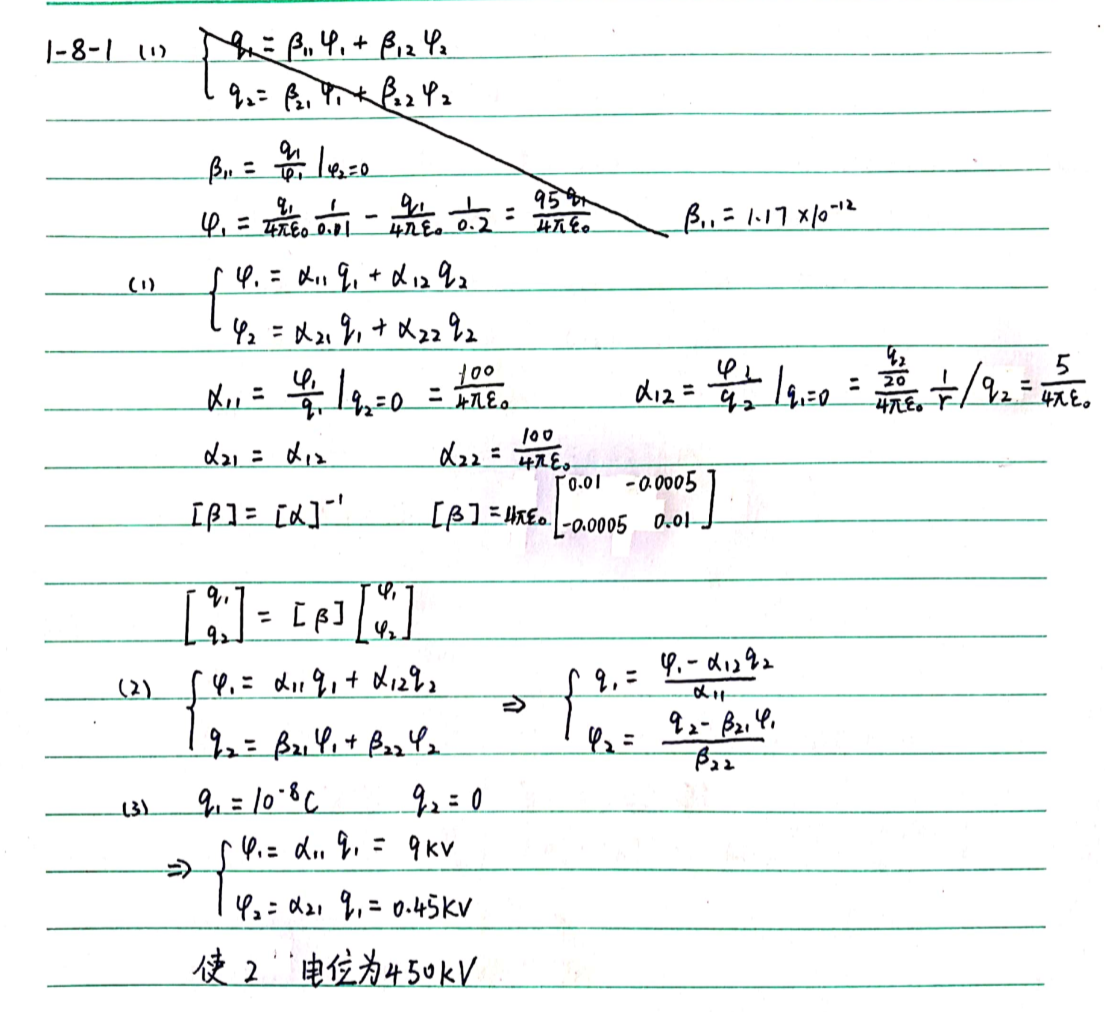 1-8-1 (1) { q₁ = β₁₁ φ₁ + β₁₂ φ₂
q₂ = β₂₁ φ₁ + β₂₂ φ₂
β₁₁ = q₁/φ₁ |φ₂=0
φ₁ = q₁/4πε₀ 1/0.01 - q₁/4πε₀ 1/0.2 = 95q₁/4πε₀ β₁₁ = 1.17 ×10⁻¹²
(1) { φ₁ = α₁₁ q₁ + α₁₂ q₂
φ₂ = α₂₁ q₁ + α₂₂ q₂
α₁₁ = φ₁/q₁ |q₂=0 = 100/4πε₀ α₁₂ = φ₁/q₂ |q₁=0 = (q₂/20)/4πε₀ 1/r / q₂ = 5/4πε₀
α₂₁ = α₁₂ α₂₂ = 100/4πε₀
[β] = [α]⁻¹ [β] = 4πε₀ [0.01 -0.0005
-0.0005 0.01]
[q₁ q₂] = [β] [φ₁ φ₂]
(2) { φ₁ = α₁₁ q₁ + α₁₂ q₂ ⇒ { q₁ = (φ₁ - α₁₂ q₂)/α₁₁
q₂ = β₂₁ φ₁ + β₂₂ φ₂ φ₂ = (q₂ - β₂₁ φ₁)/β₂₂
(3) q₁ = 10⁻⁸ C q₂ = 0
⇒ { φ₁ = α₁₁ q₁ = 9kV
φ₂ = α₂₁ q₁ = 0.45kV
使 2 电位为450kV